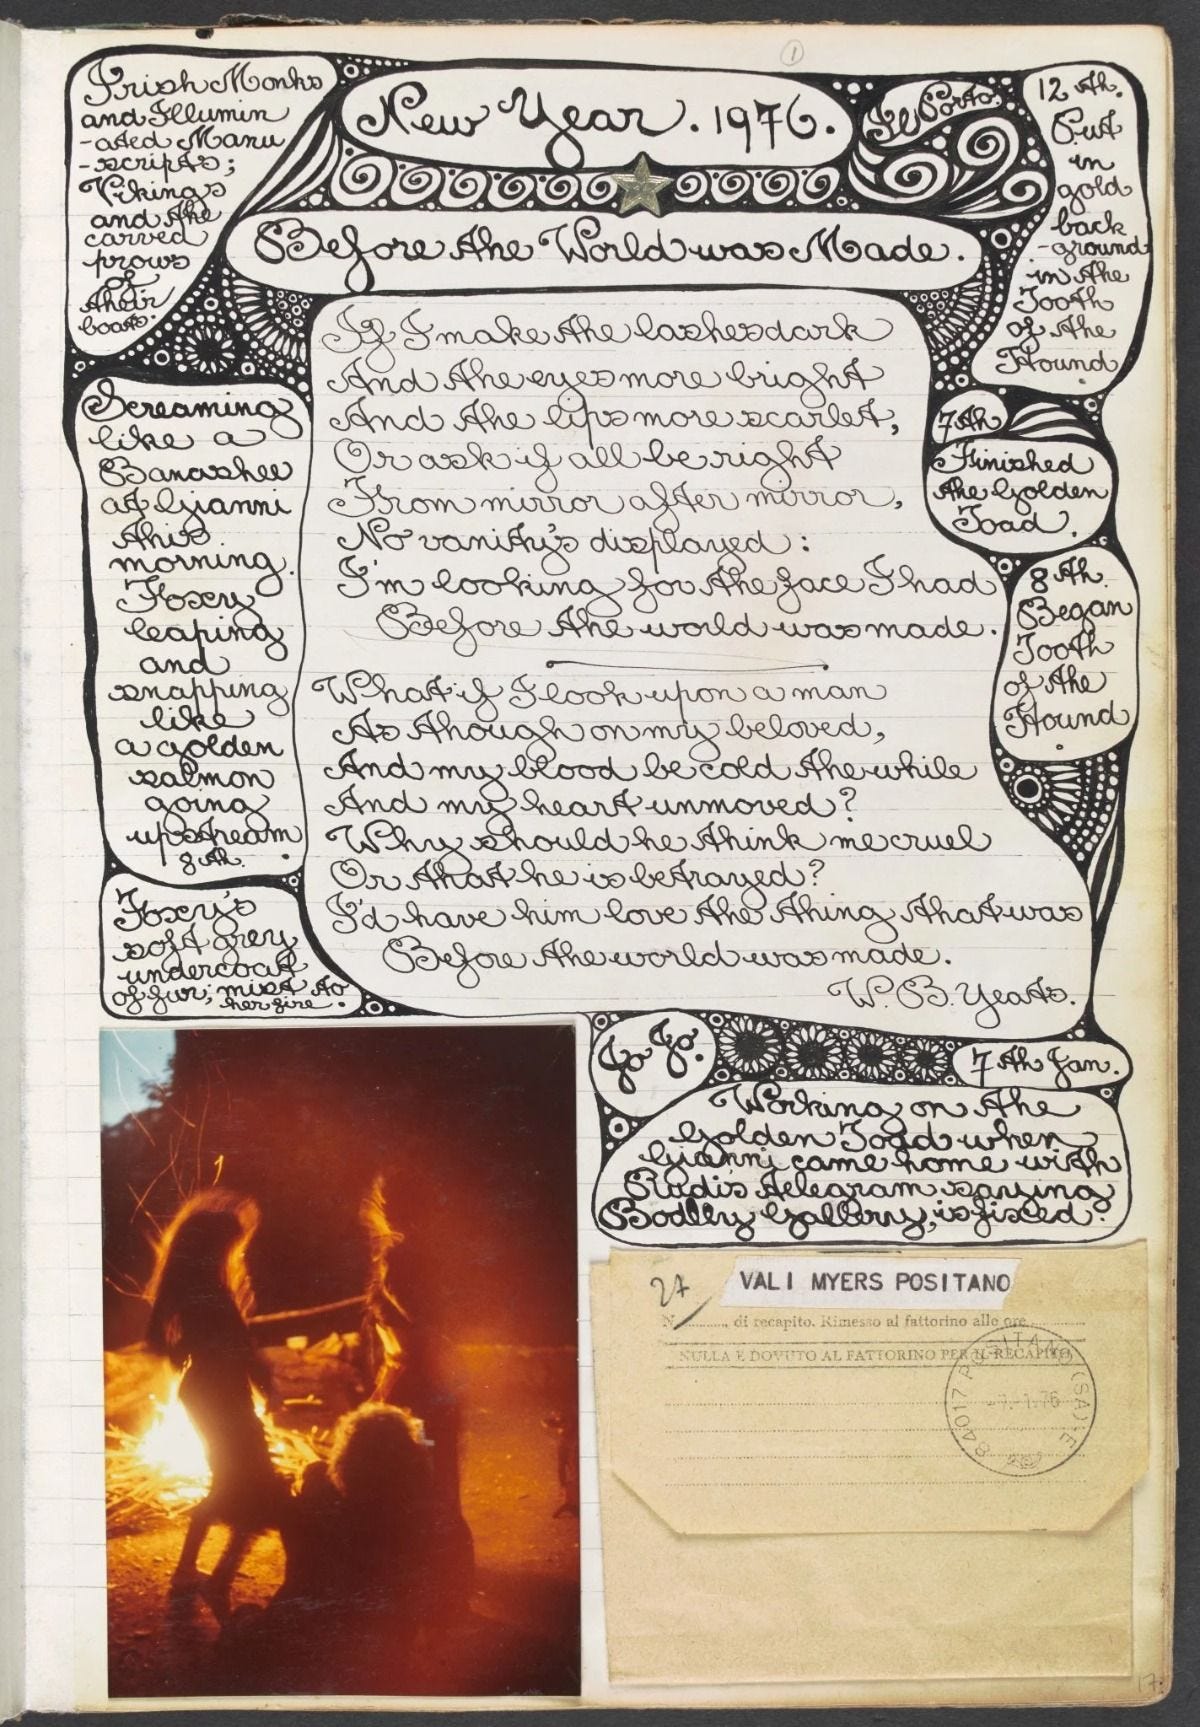 1
New Year. 1976.
Il Porto.
Before the World was Made.
Irish Monks
and Illumin
-ated Manu
-scripts;
Vikings
and the
carved
prows
of
their
boats.
12 th.
Put
in
gold
back
-ground
in the
Tooth
of the
Hound
If I make the lashes dark
And the eyes more bright
And the lips more scarlet,
Or ask if all be right
From mirror after mirror,
No vanity's displayed:
I'm looking for the face I had
Before the world was made.
What if I look upon a man
As though on my beloved,
And my blood be cold the while
And my heart unmoved?
Why should he think me cruel
Or that he is betrayed?
I'd have him love the thing that was
Before the world was made.
W. B. Yeats.
Screaming
like a
Banashee
at Gianni
this
morning.
Foxy
leaping
and
snapping
like
a golden
salmon
going
upstream
8 th.
7 th
Finished
the Golden
Toad.
8 th.
Began
Tooth
of the
Hound
Foxy's
soft grey
undercoat
of fur; mist to
her fire.
Jo Jo.
7 th Jan.
Working on the
Golden Toad when
Gianni came home with
Rudi's telegram saying
Bodley Gallery, is fixed.
27
VALI MYERS POSITANO
N. ........., di recapito. Rimesso al fattorino alle ore
NULLA È DOVUTO AL FATTORINO PER IL RECAPITO
84017 POSITANO (SA) E
-7.-1.76
17